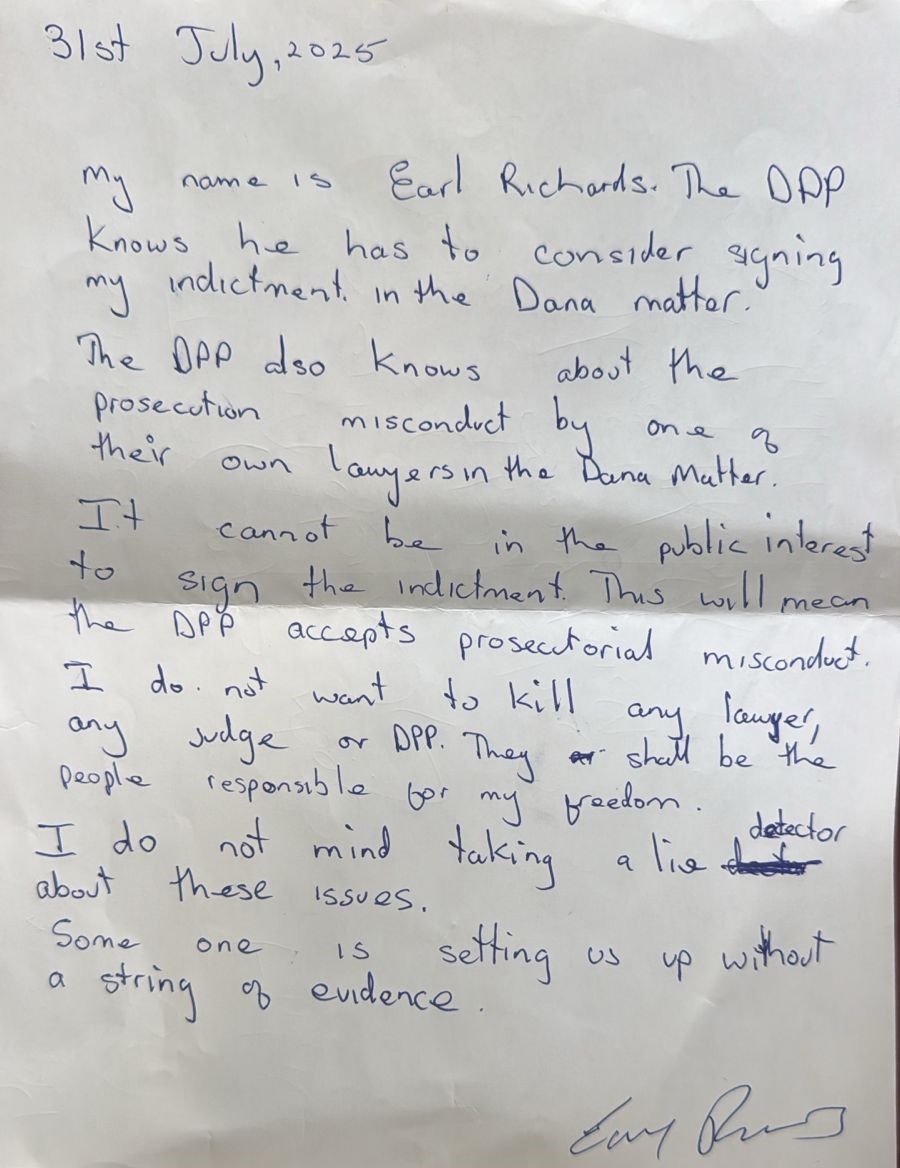 31st July, 2025
My name is Earl Richards. The DPP
knows he has to consider signing
my indictment. in the Dana matter.
The DPP also knows about the
prosecution misconduct by one of
their own lawyers in the Dana Matter.
It cannot be in the public interest
to sign the indictment. This will mean
the DPP accepts prosecutorial misconduct.
I do not want to kill any lawyer,
any judge or DPP. They shall be the
people responsible for my freedom.
I do not mind taking a lie detector
about these issues.
Some one is setting us up without
a string of evidence.
Earl